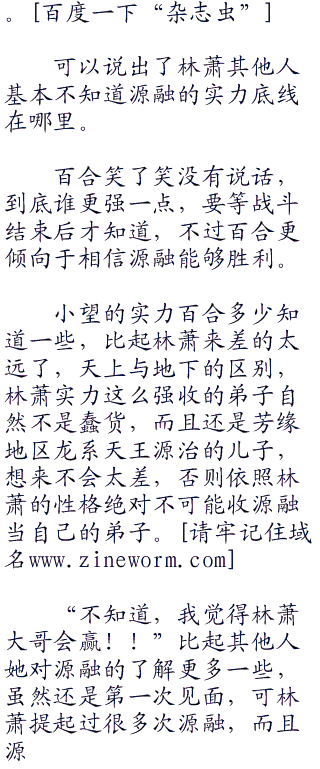 。[百度一下“杂志虫”]
可以说出了林萧其他人
基本不知道源融的实力底线
在哪里。
百合笑了笑没有说话，
到底谁更强一点，要等战斗
结束后才知道，不过百合更
倾向于相信源融能够胜利。
小望的实力百合多少知
道一些，比起林萧来差的太
远了，天上与地下的区别，
林萧实力这么强收的弟子自
然不是蠢货，而且还是芳缘
地区龙系天王源治的儿子，
想来不会太差，否则依照林
萧的性格绝对不可能收源融
当自己的弟子。[请牢记住域
名www.zineworm.com]
“不知道，我觉得林萧
大哥会赢！！”比起其他人
她对源融的了解更多一些，
虽然还是第一次见面，可林
萧提起过很多次源融，而且
源